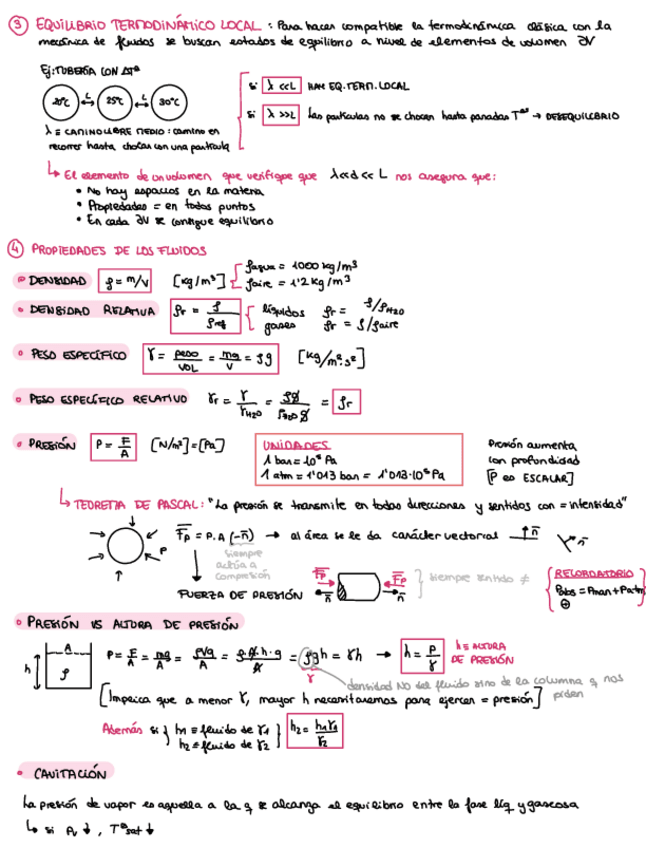 ③ EQUILIBRIO TERMODINÁMICO LOCAL : Para hacer compatible la termodinámica clásica con la
mecánica de fluidos se buscan estados de equilibrio a nivel de elementos de volumen ∂V
Ej: TUBERÍA CON ΔTª
20°C ← L → 25°C ← L → 30°C
si λ <<L HAY EQ. TERM. LOCAL
si λ >>L Las partículas no se chocan hasta pasadas Tªs → DESEQUILIBRIO
λ ≡ CAMINO LIBRE MEDIO : camino en
recorrer hasta chocar con una partícula
↳ El elemento de un volumen que verifique que λ<<d<< L nos asegura que:
• No hay espacios en la materia
• Propiedades = en todos puntos
• En cada ∂V se consigue equilibrio
④ PROPIEDADES DE LOS FLUIDOS
• DENSIDAD ρ = m/V [kg/m³] ρagua = 1000 kg/m³
ρaire = 1'2 kg/m³
• DENSIDAD RELATIVA ρr = ρ/ρref líquidos ρr = ρ/ρH2O
gases ρr = ρ/ρaire
• PESO ESPECÍFICO γ = peso/VOL = mg/V = ρg [kg/m²·s²]
• PESO ESPECÍFICO RELATIVO γr = γ/γH2O = ρg/ρH2O g = ρr
• PRESIÓN P = F/A [N/m²]=[Pa]
UNIDADES
1 bar = 10⁵ Pa
1 atm = 1'013 bar = 1'013·10⁵ Pa
Presión aumenta
con profundidad
[P es ESCALAR]
↳ TEOREMA DE PASCAL: "La presión se transmite en todas direcciones y sentidos con = intensidad"
P
Fp = P. A (-n) → al área se le da carácter vectorial n n
siempre
actúa a
compresión
FUERZA DE PRESIÓN
Fp n Fp n
siempre sentido ≠
RECORDATORIO
Pabs = Pman + Patm
⊕
• PRESIÓN VS ALTURA DE PRESIÓN
A
h
ρ
P = F/A = mg/A = ρVg/A = ρ·A·h·g/A = ρgh = γh → h = P/γ
h ≡ ALTURA
DE PRESIÓN
γ
densidad NO del fluido sino de la columna q nos
piden
[Implica que a menor γ, mayor h necesitaremos para ejercer = presión]
Además si h1 ≡ fluido de γ1
h2 ≡ fluido de γ2
h2 = h1γ1/γ2
• CAVITACIÓN
La presión de vapor es aquella a la q se alcanza el equilibrio entre la fase líq y gaseosa
↳ si ↓ , Tªsat ↓